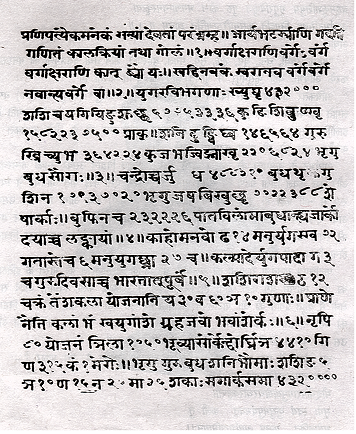 प्रणिपत्यैकमनेकं सत्यां देवतां परं ब्रह्म॥ आर्यभटस्त्रीणि गदति
गणितं कालक्रियां तथा गोलं॥१॥ वर्गाक्षराणि वर्गे वर्गे
वर्गाक्षराणि कात् ङ्मौ यः॥ खद्विनवके स्वरा नव वर्गे वर्गे
नवान्त्यवर्गे वा॥२॥ युगरविभगणाः ख्युघृ ४३२००००
शशि चयगियिङुशुछ्लृ ५७७५३३३६ कु ङिशिबुण्लृख्षृ
१५८२२३७५०० प्राक्॥ शनि ढुङ्विघ्व १४६५६४ गुरु
ख्रिच्युभ ३६४२२४ कुज भद्लिझ्नुखृ २२९६८२४ भृगु
बुध सौराः॥३॥ चन्द्रोच्चर्जु ध ४८८२१९ बुध सुगु
शिन १७९३७०२० भृगु जषबिखुछृ ७०२२३८८ शे
षार्काः॥ बुफिनच २३२२२६ पातविलोमा बुधाह्न्यजार्को
दयाच्च लङ्कायां॥४॥ काहो मनवो ढ १४ मनुयुग श्ख ७२
गतास्ते च ६ मनुयुगछ्ना २७ च॥ कल्पादेर्युगपादा ग ३
च गुरुदिवसाच्च भारतात्पूर्वं॥५॥ शशिराशयष्ठ १२
चक्रं तेंशकला योजनानि य ३० व ६० ञ १० गुणाः॥ प्राणे
नैति कलां भं खयुगांशे ग्रहजवो भवांशेर्कः॥६॥ नृषि
८० योजनं ञिला १०५० भूव्यासोर्केन्द्वोर्घ्रिञ ४४१० गि
ण ३१५ क १ मेरोः॥ भृगु गुरु बुध शनि भौमाः शशि ङ ५
ञ १० ण १५ न २० मा २५ शकाः समार्कसमा ४३२००००